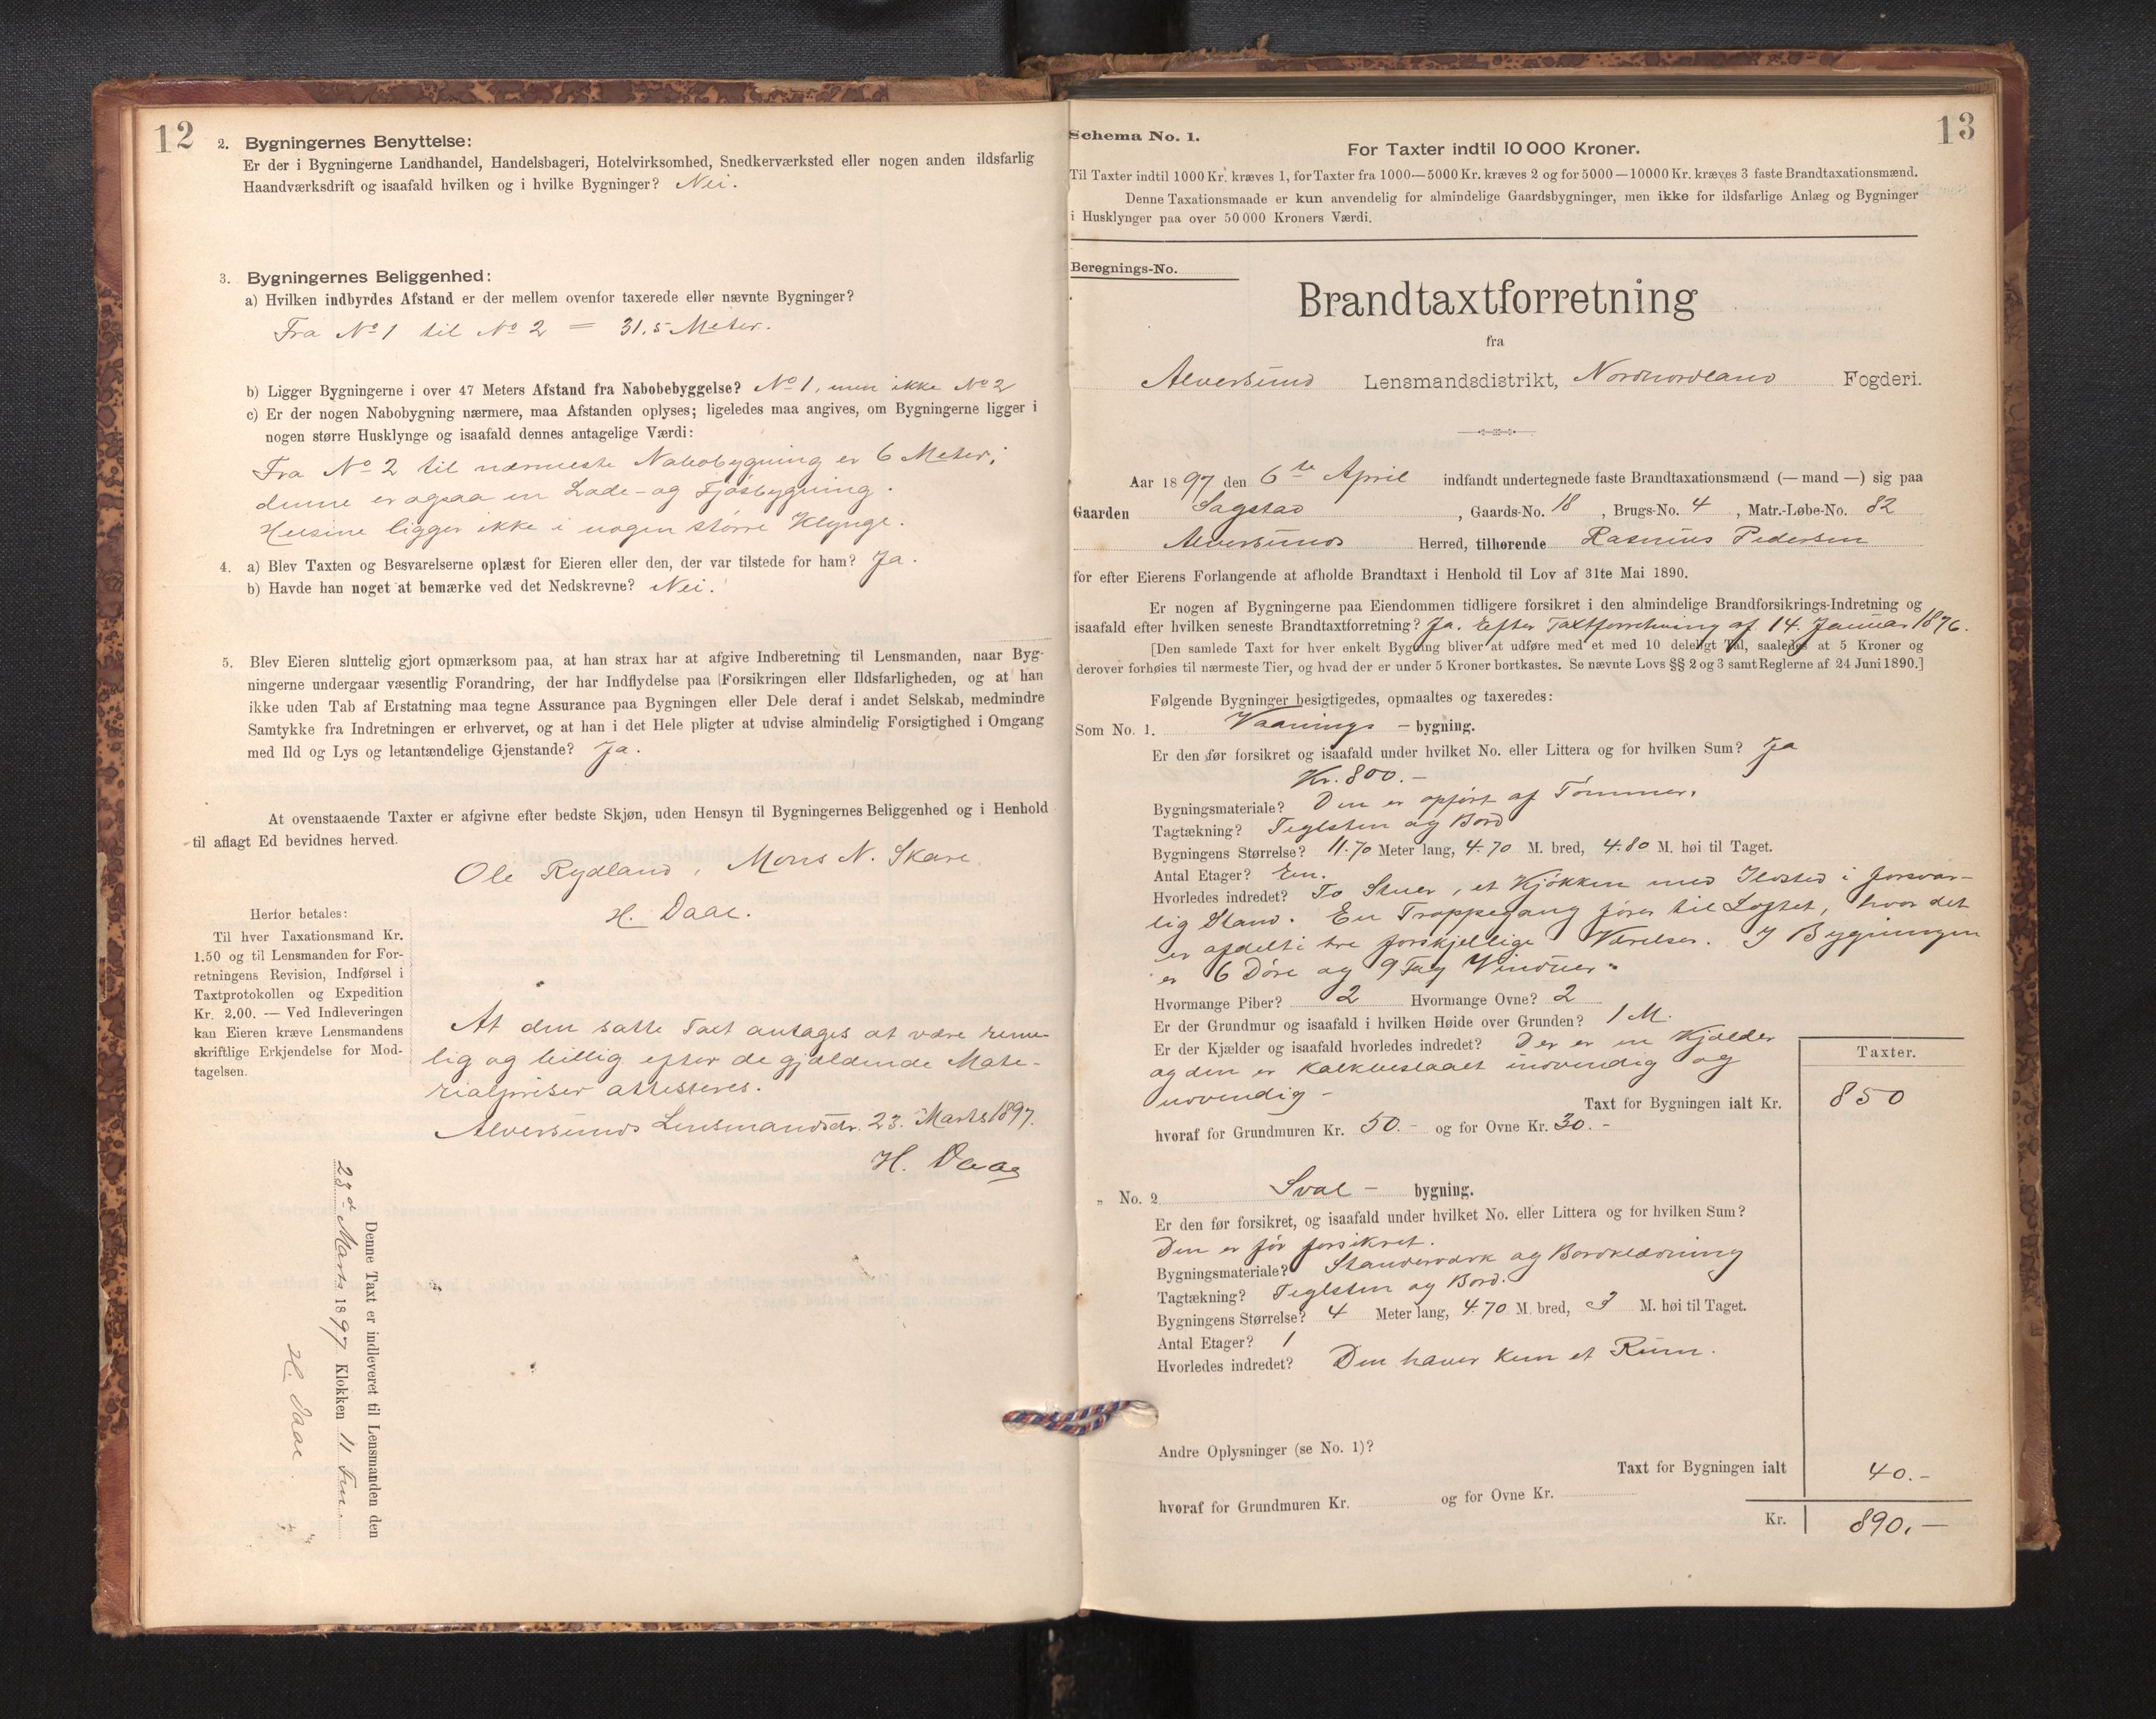 12
2. Bygningernes Benyttelse:
Er der i Bygningerne Landhandel, Handelsbageri, Hotelvirksomhed, Snedkerværksted eller nogen anden ildsfarlig
Haandværksdrift og isaafald hvilken og i hvilke Bygninger? Nei.
3. Bygningernes Beliggenhed:
a) Hvilken indbyrdes Afstand er der mellem ovenfor taxerede eller nævnte Bygninger?
Fra No 1 til No 2 = 31.5 Meter.
b) Ligger Bygningerne i over 47 Meters Afstand fra Nabobebyggelse? No 1, men ikke No 2
c) Er der nogen Nabobygning nærmere, maa Afstanden oplyses; ligeledes maa angives, om Bygningerne ligger i
nogen større Husklynge og isaafald dennes antagelige Værdi:
Fra No 2 til nærmeste Nabobygning er 6 Meter;
denne er ogsaa en Lade- og Fjøsbygning.
Husene ligger ikke i nogen større Klynge.
4. a) Blev Taxten og Besvarelserne oplæst for Eieren eller den, der var tilstede for ham? Ja.
b) Havde han noget at bemærke ved det Nedskrevne? Nei.
5. Blev Eieren sluttelig gjort opmærksom paa, at han strax har at afgive Indberetning til Lensmanden, naar Byg-
ningerne undergaar væsentlig Forandring, der har Indflydelse paa Forsikringen eller Ildsfarligheden, og at han
ikke uden Tab af Erstatning maa tegne Assurance paa Bygningen eller Dele deraf i andet Selskab, medmindre
Samtykke fra Indretningen er erhvervet, og at han i det Hele pligter at udvise almindelig Forsigtighed i Omgang
med Ild og Lys og letantændelige Gjenstande? Ja.
At ovenstaaende Taxter er afgivne efter bedste Skjøn, uden Hensyn til Bygningernes Beliggenhed og i Henhold
til aflagt Ed bevidnes herved.
Ole Rydland, Mons N. Skare
H. Daae.
Herfor betales:
Til hver Taxationsmand Kr.
1.50 og til Lensmanden for For-
retningens Revision, Indførsel i
Taxtprotokollen og Expedition
Kr. 2.00. — Ved Indleveringen
kan Eieren kræve Lensmandens
skriftlige Erkjendelse for Mod-
tagelsen.
At den satte Taxt antages at være rime-
lig og billig efter de gjældende Mate-
rialpriser attesteres.
Alversunds Lensmandsdr. 23. Marts 1897.
H. Daae
Denne Taxt er indleveret til Lensmanden den
23de Marts 1897 Klokken 11 Fm.
H. Daae
13
Schema No. 1.
For Taxter indtil 10 000 Kroner.
Til Taxter indtil 1000 Kr. kræves 1, for Taxter fra 1000—5000 Kr. kræves 2 og for 5000—10000 Kr. kræves 3 faste Brandtaxationsmænd.
Denne Taxationsmaade er kun anvendelig for almindelige Gaardsbygninger, men ikke for ildsfarlige Anlæg og Bygninger
i Husklynger paa over 50 000 Kroners Værdi.
Beregnings-No.
Brandtaxtforretning
fra
Alversund Lensmandsdistrikt, Nordhordland Fogderi.
Aar 1897 den 6te April indfandt undertegnede faste Brandtaxationsmænd (— mand —) sig paa
Gaarden Sagstad, Gaards-No. 18, Brugs-No. 4, Matr.-Løbe-No. 82
Alversunds Herred, tilhørende Rasmus Pedersen
for efter Eierens Forlangende at afholde Brandtaxt i Henhold til Lov af 31te Mai 1890.
Er nogen af Bygningerne paa Eiendommen tidligere forsikret i den almindelige Brandforsikrings-Indretning og
isaafald efter hvilken seneste Brandtaxtforretning? Ja. Efter Taxtforretning af 14. Januar 1876.
[Den samlede Taxt for hver enkelt Bygning bliver at udføre med et med 10 deleligt Tal, saaledes at 5 Kroner og
derover forhøies til nærmeste Tier, og hvad der er under 5 Kroner bortkastes. Se nævnte Lovs §§ 2 og 3 samt Reglerne af 24 Juni 1890.]
Følgende Bygninger besigtigedes, opmaaltes og taxeredes:
Som No. 1. Vaanings - bygning.
Er den før forsikret og isaafald under hvilket No. eller Littera og for hvilken Sum? Ja
Kr. 800.-
Bygningsmateriale? Den er opført af Tømmer.
Tagtækning? Teglsten og Bord
Bygningens Størrelse? 11.70 Meter lang, 4.70 M. bred, 4.80 M. høi til Taget.
Antal Etager? En.
Hvorledes indredet? To Stuer, et Kjøkken med Ildsted i forsvar-
lig Stand. En Trappegang fører til Loftet, hvor det
er afdelt i tre forskjellige Værelser. I Bygningen
er 6 Døre og 9 Fag Vinduer.
Hvormange Piber? 2 Hvormange Ovne? 2
Er der Grundmur og isaafald i hvilken Høide over Grunden? 1 M.
Er der Kjælder og isaafald hvorledes indredet? Der er en Kjælder
og den er Kalkbeslaaet indvendig og
udvendig -
Taxter.
Taxt for Bygningen ialt Kr. 850
hvoraf for Grundmuren Kr. 50.- og for Ovne Kr. 30.-
" No. 2 Sval - bygning.
Er den før forsikret, og isaafald under hvilket No. eller Littera og for hvilken Sum?
Den er før forsikret.
Bygningsmateriale? Standerværk og Bordklædning
Tagtækning? Teglsten og Bord.
Bygningens Størrelse? 4 Meter lang, 4.70 M. bred, 3 M. høi til Taget.
Antal Etager? 1
Hvorledes indredet? Den haver kun et Rum.
Andre Oplysninger (se No. 1)?
Taxt for Bygningen ialt 40.-
hvoraf for Grundmuren Kr. og for Ovne Kr.
Kr. 890.-